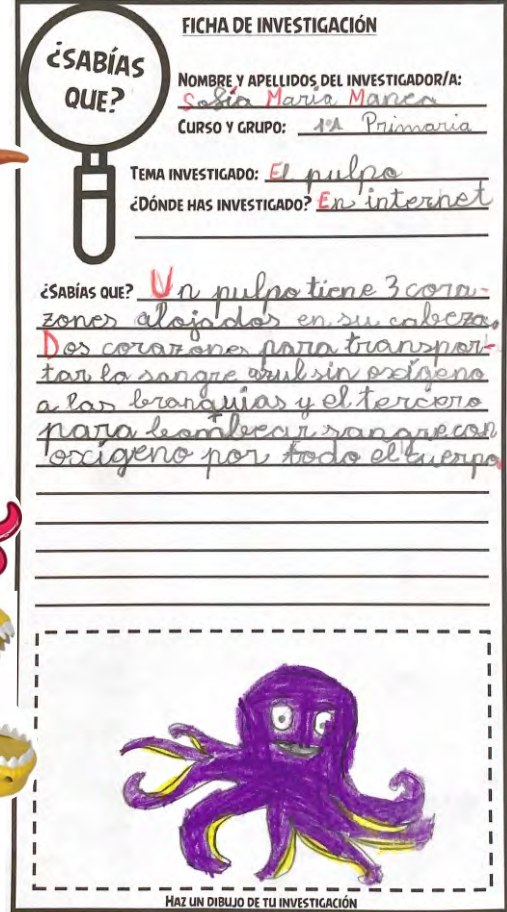 FICHA DE INVESTIGACIÓN
¿SABÍAS
QUE?
NOMBRE Y APELLIDOS DEL INVESTIGADOR/A:
Sofía María Manea
CURSO Y GRUPO: 1ºA Primaria
TEMA INVESTIGADO: El pulpo
¿DÓNDE HAS INVESTIGADO? En internet
¿SABÍAS QUE? Un pulpo tiene 3 cora-
zones alojados en su cabeza.
Dos corazones para transpor-
tar la sangre azul sin oxígeno
a las branquias y el tercero
para bombear sangre con
oxígeno por todo el cuerpo.
HAZ UN DIBUJO DE TU INVESTIGACIÓN